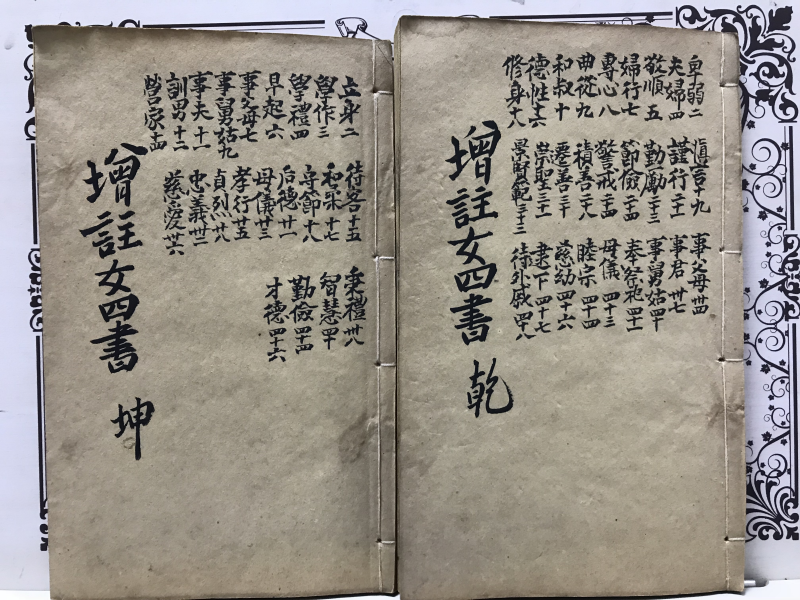 卑弱二
夫婦四
敬順五
婦行七
專心八
曲從九
和叔十
德性十六
修身十八
慎言十九
謹行二十一
勤勵二十三
節儉二十四
警戒二十四
積善二十八
遷善三十
崇聖三十一
景賢範三十三
事父母卅四
事君卅七
事舅姑四十
奉祭祀四十一
母儀四十三
睦宗四十四
慈幼四十六
逮下四十七
待外戚四十八
增註女四書 乾
立身二
學作三
學禮四
早起六
事父母七
事舅姑九
事夫十一
訓男十二
營家十四
待客十五
和柔十七
守節十八
后德廿一
母儀廿三
孝行廿五
貞烈廿八
忠義卅二
慈愛卅六
秉禮卅八
智慧四十
勤儉四十四
才德四十六
增註女四書 坤